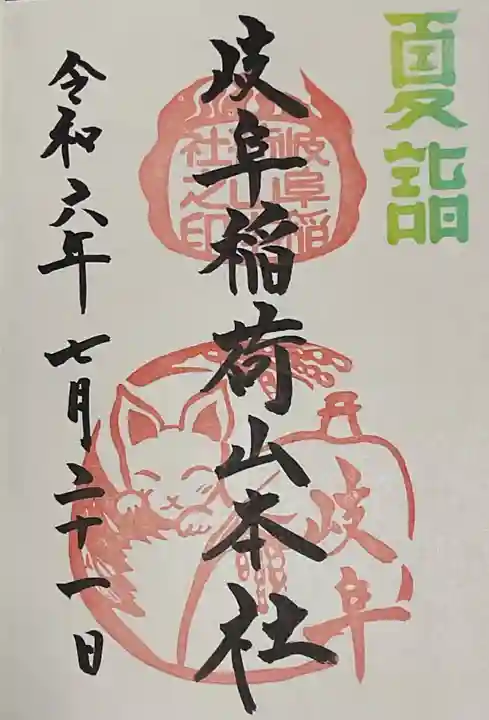 夏詣
岐阜稲荷山本社
岐阜稲荷山本社之印
岐阜
令和六年七月二十一日